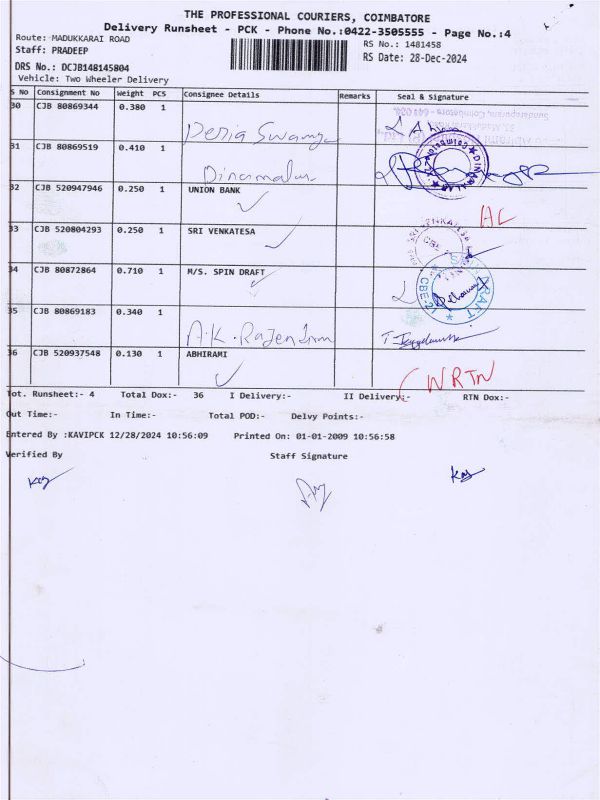 THE PROFESSIONAL COURIERS, COIMBATORE
Delivery Runsheet - PCK - Phone No.:0422-3505555 - Page No.:4
Route: MADUKKARAI ROAD
RS No.: 1481458
Staff: PRADEEP
RS Date: 28-Dec-2024
DRS No.: DCJB148145804
Vehicle: Two Wheeler Delivery
S No Consignment No Weight PCS Consignee Details Remarks Seal & Signature
30 CJB 80869344 0.380 1 Peria Swamy
31 CJB 80869519 0.410 1 Dinamalar DINAMALAR
32 CJB 520947946 0.250 1 UNION BANK AC
33 CJB 520804293 0.250 1 SRI VENKATESA
34 CJB 80872864 0.710 1 M/S. SPIN DRAFT
35 CJB 80869183 0.340 1 A.K. Rajendran
36 CJB 520937548 0.130 1 ABHIRAMI WRTN
Tot. Runsheet:- 4 Total Dox:- 36 I Delivery:- II Delivery:- RTN Dox:-
Out Time:- In Time:- Total POD:- Delvy Points:-
Entered By :KAVIPCK 12/28/2024 10:56:09 Printed On: 01-01-2009 10:56:58
Verified By Staff Signature